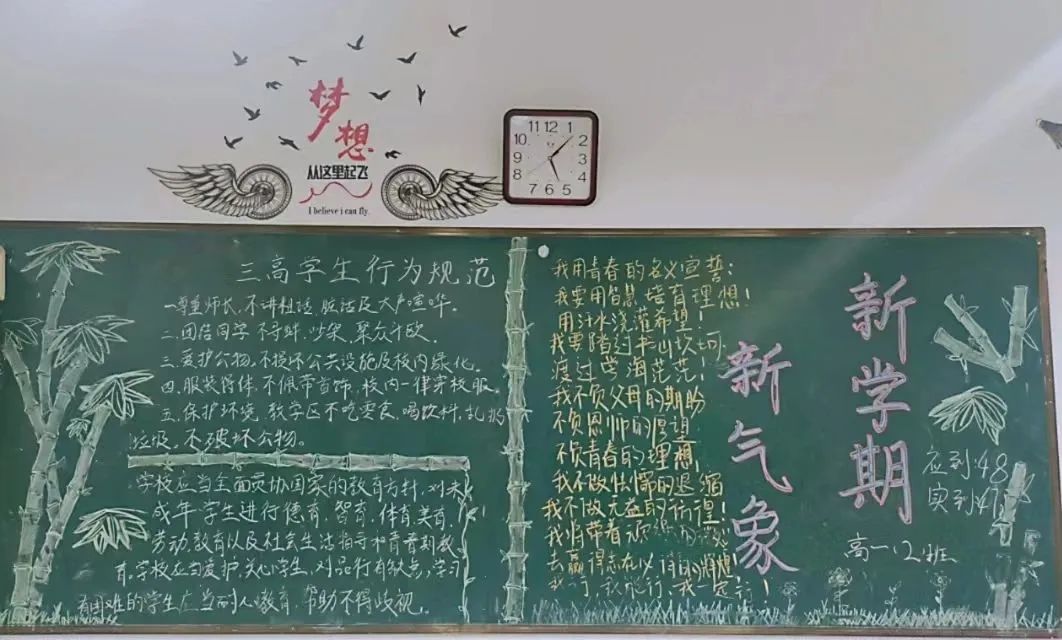 梦
想
从这里起飞
I believe i can fly.
11 12 1
10 2
9 3
8 4
7 6 5
三高学生行为规范
一.尊重师长,不讲粗话,脏话及大声喧哗。
二.团结同学,不寻衅,吵架,聚众斗殴.
三.爱护公物,不损坏公共设施及校内绿化。
四.服装得体,不佩带首饰,校内一律穿校服。
五.保护环境,教学区不吃零食,喝饮料,乱扔
垃圾,不破坏公物。
学校应当全面贯协国家的教育方针,对未
成年学生进行德育,智育,体育,美育,
劳动教育以及社会生活指导和青春期教
育,学校应当爱护,关心学生,对品行有缺点,学习
有困难的学生应当耐心教育,帮助不得歧视。
我用青春的名义宣誓:
我要用智慧培育理想!
用汗水浇灌希望!
我要踏过书山坎坷,
度过学海茫茫!
我不负父母的期盼
不负恩师的厚望
不负青春的理想,
我不做怯懦的退缩
我不做无益的彷徨!
我将带着
去赢得志在必得的辉煌
我行,我能行,我一定行!
新学期
新气象
应到:48
实到47
高一12班